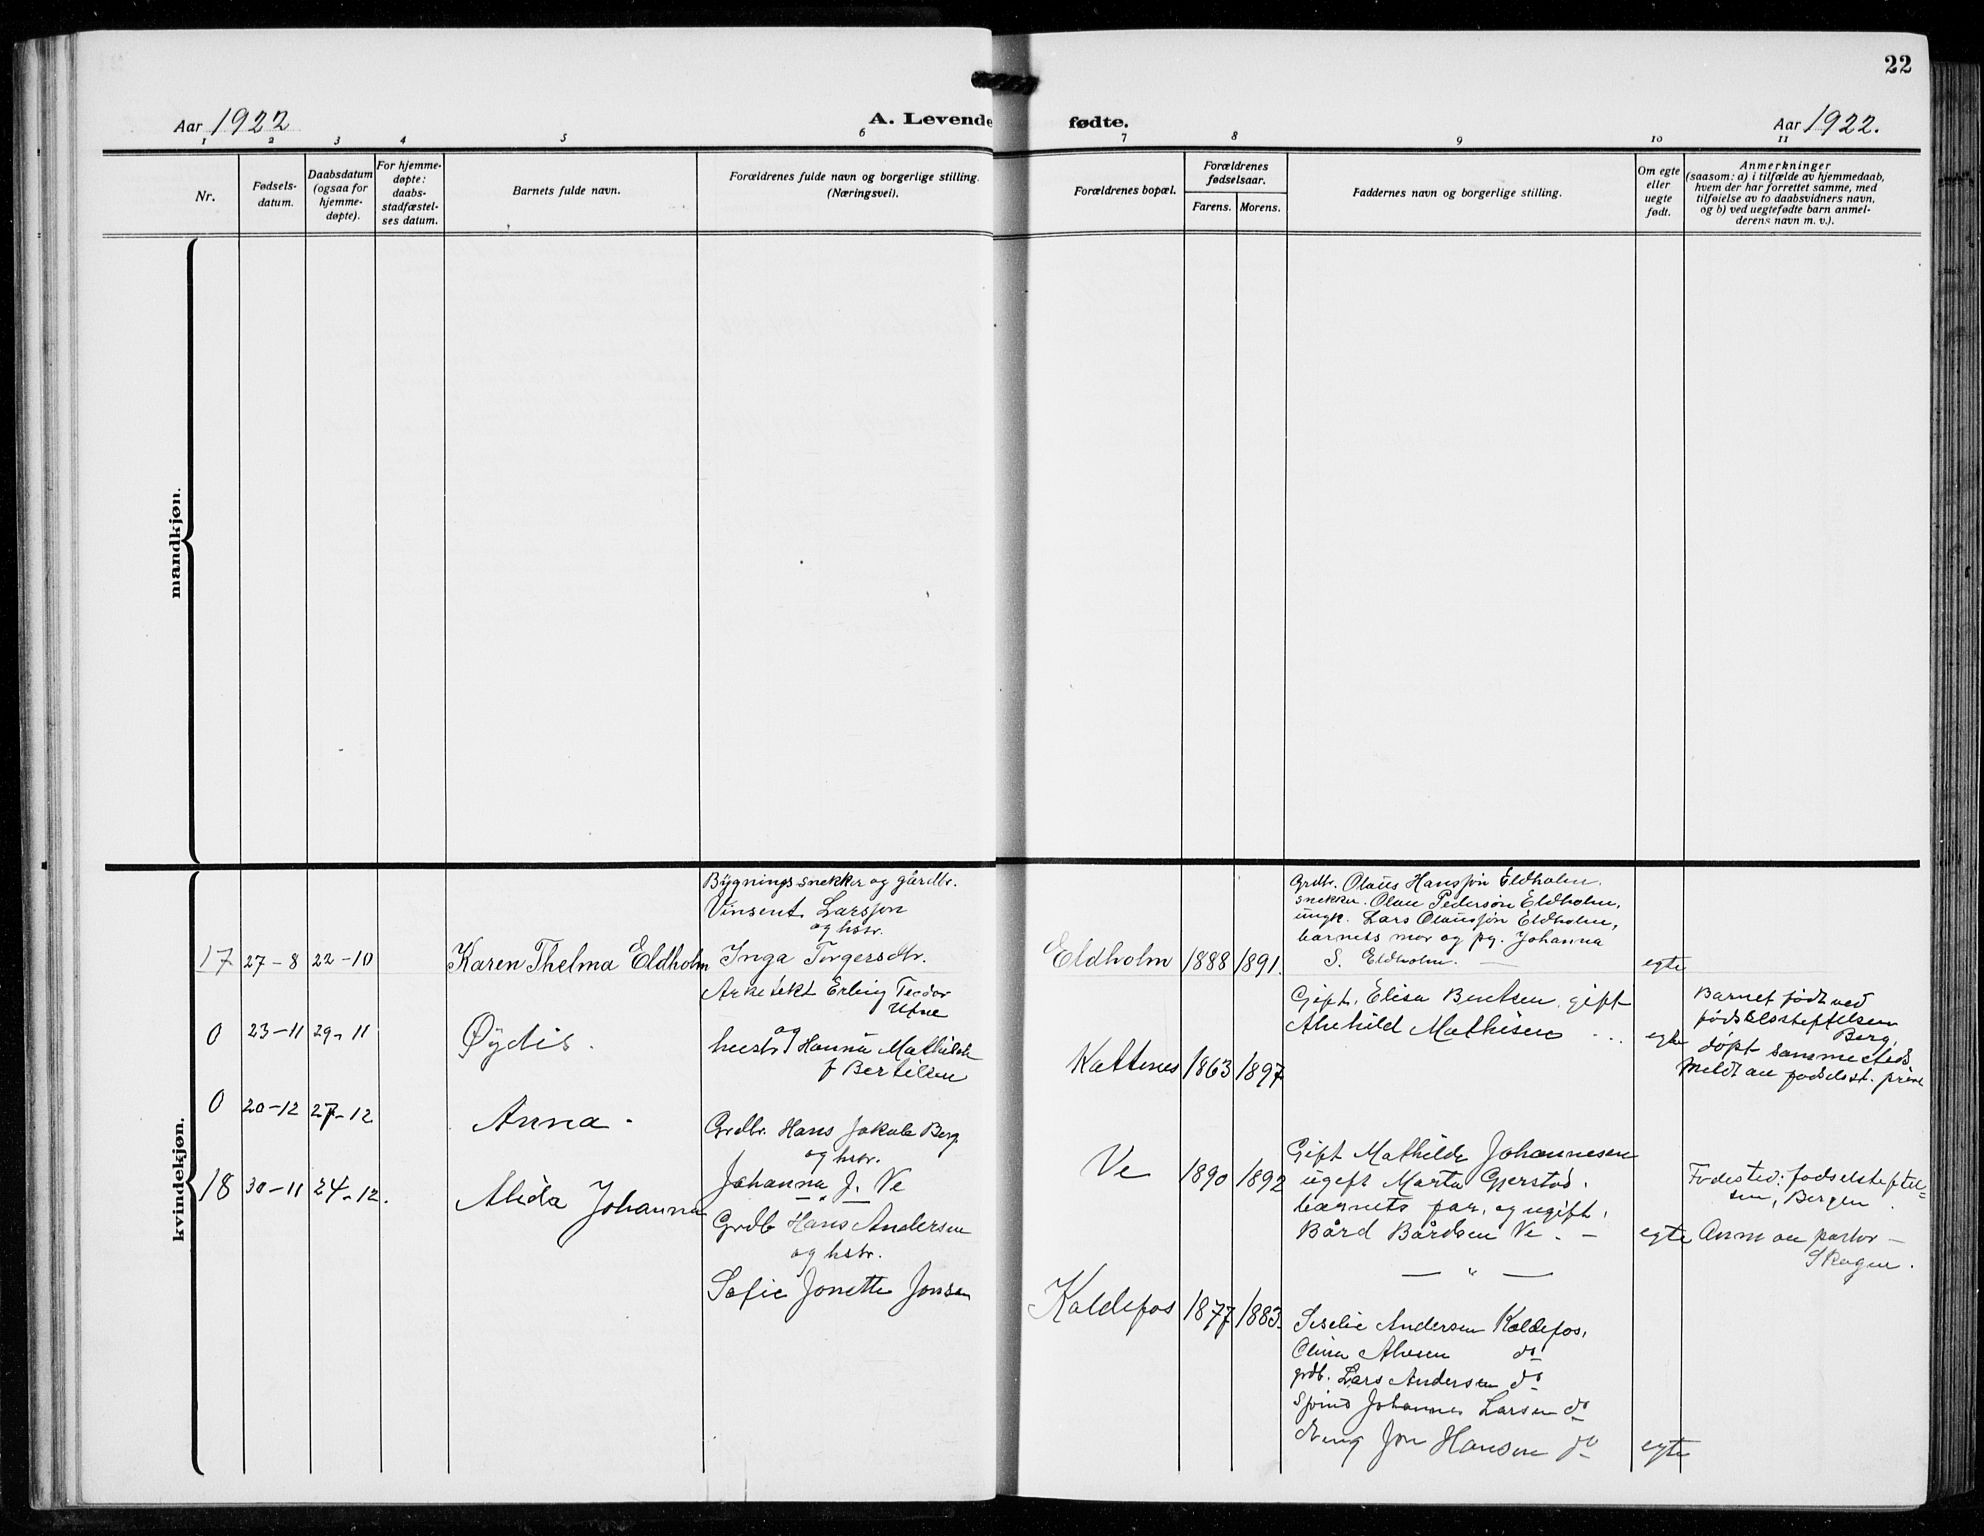 22
Aar 1922
A. Levende fødte.
Aar 1922.
1 2 3 4 5 6 7 8 9 10 11
Nr.
Fødsels-
datum.
Daabsdatum
(ogsaa for
hjemme-
døpte).
For hjemme-
døpte:
daabs-
stadfæstel-
ses datum.
Barnets fulde navn.
Forældrenes fulde navn og borgerlige stilling.
(Næringsvei).
Forældrenes bopæl.
Forældrenes
fødselsaar.
Farens. Morens.
Faddernes navn og borgerlige stilling.
Om egte
eller
uegte
født.
Anmerkninger
(saasom: a) i tilfælde av hjemmedaab,
hvem der har forrettet samme, med
tilføielse av to daabsvidners navn,
og b) ved uegtefødte barn anmel-
derens navn m. v.).
mandkjøn.
kvindekjøn.
17 27-8 22-10 Karen Thelma Eldholm
Bygningssnekker og gårdbr.
Vinsent Larssøn
og hstr.
Inga Torgersdtr.
Eldholm 1888 1891.
Grdbr. Olaus Hanssøn Eldholm.
snekker. Olau Pedersøn Eldholm,
ungk. Lars Olaussøn Eldholm,
barnets mor og pg. Johanna
S. Eldholm.
egte
0 23-11 29-11 Øydis.
Arkitekt Erling Teodor
Utne
og
hustr Hanna Mathilde
f Bertilsen
Kattenes 1863 1897
Gift. Elisa Bentsen, gift
Alvhild Mathisen
egte
Barnet født ved
fødselsstiftelsen
Berg,
døpt sammesteds
Meldt av fødselsst. prest
0 20-12 27-12 Anna.
Grdbr. Hans Jakob Berg
og hstr.
Johanna J. Ve
Ve 1890 1892
Gift Mathilde Johannesen
ugift Marta Gjerstad.
barnets far, og ugift.
Bård Bårdsen Ve. -
egte
Fødested: fødselsstiftel-
sen, Bergen.
Anm av pastor -
Skagen.
— " —
18 30-11 24-12. Alida Johanna
Grdb Hans Andersen
og hstr.
Sofie Jonette Jonsen
Kaldefos 1877 1883.
Andersen Kaldefos,
Olina Alvsen do
grdb. Lars Andersen do
Johannes Larsen do
Jon Hansen do
egte